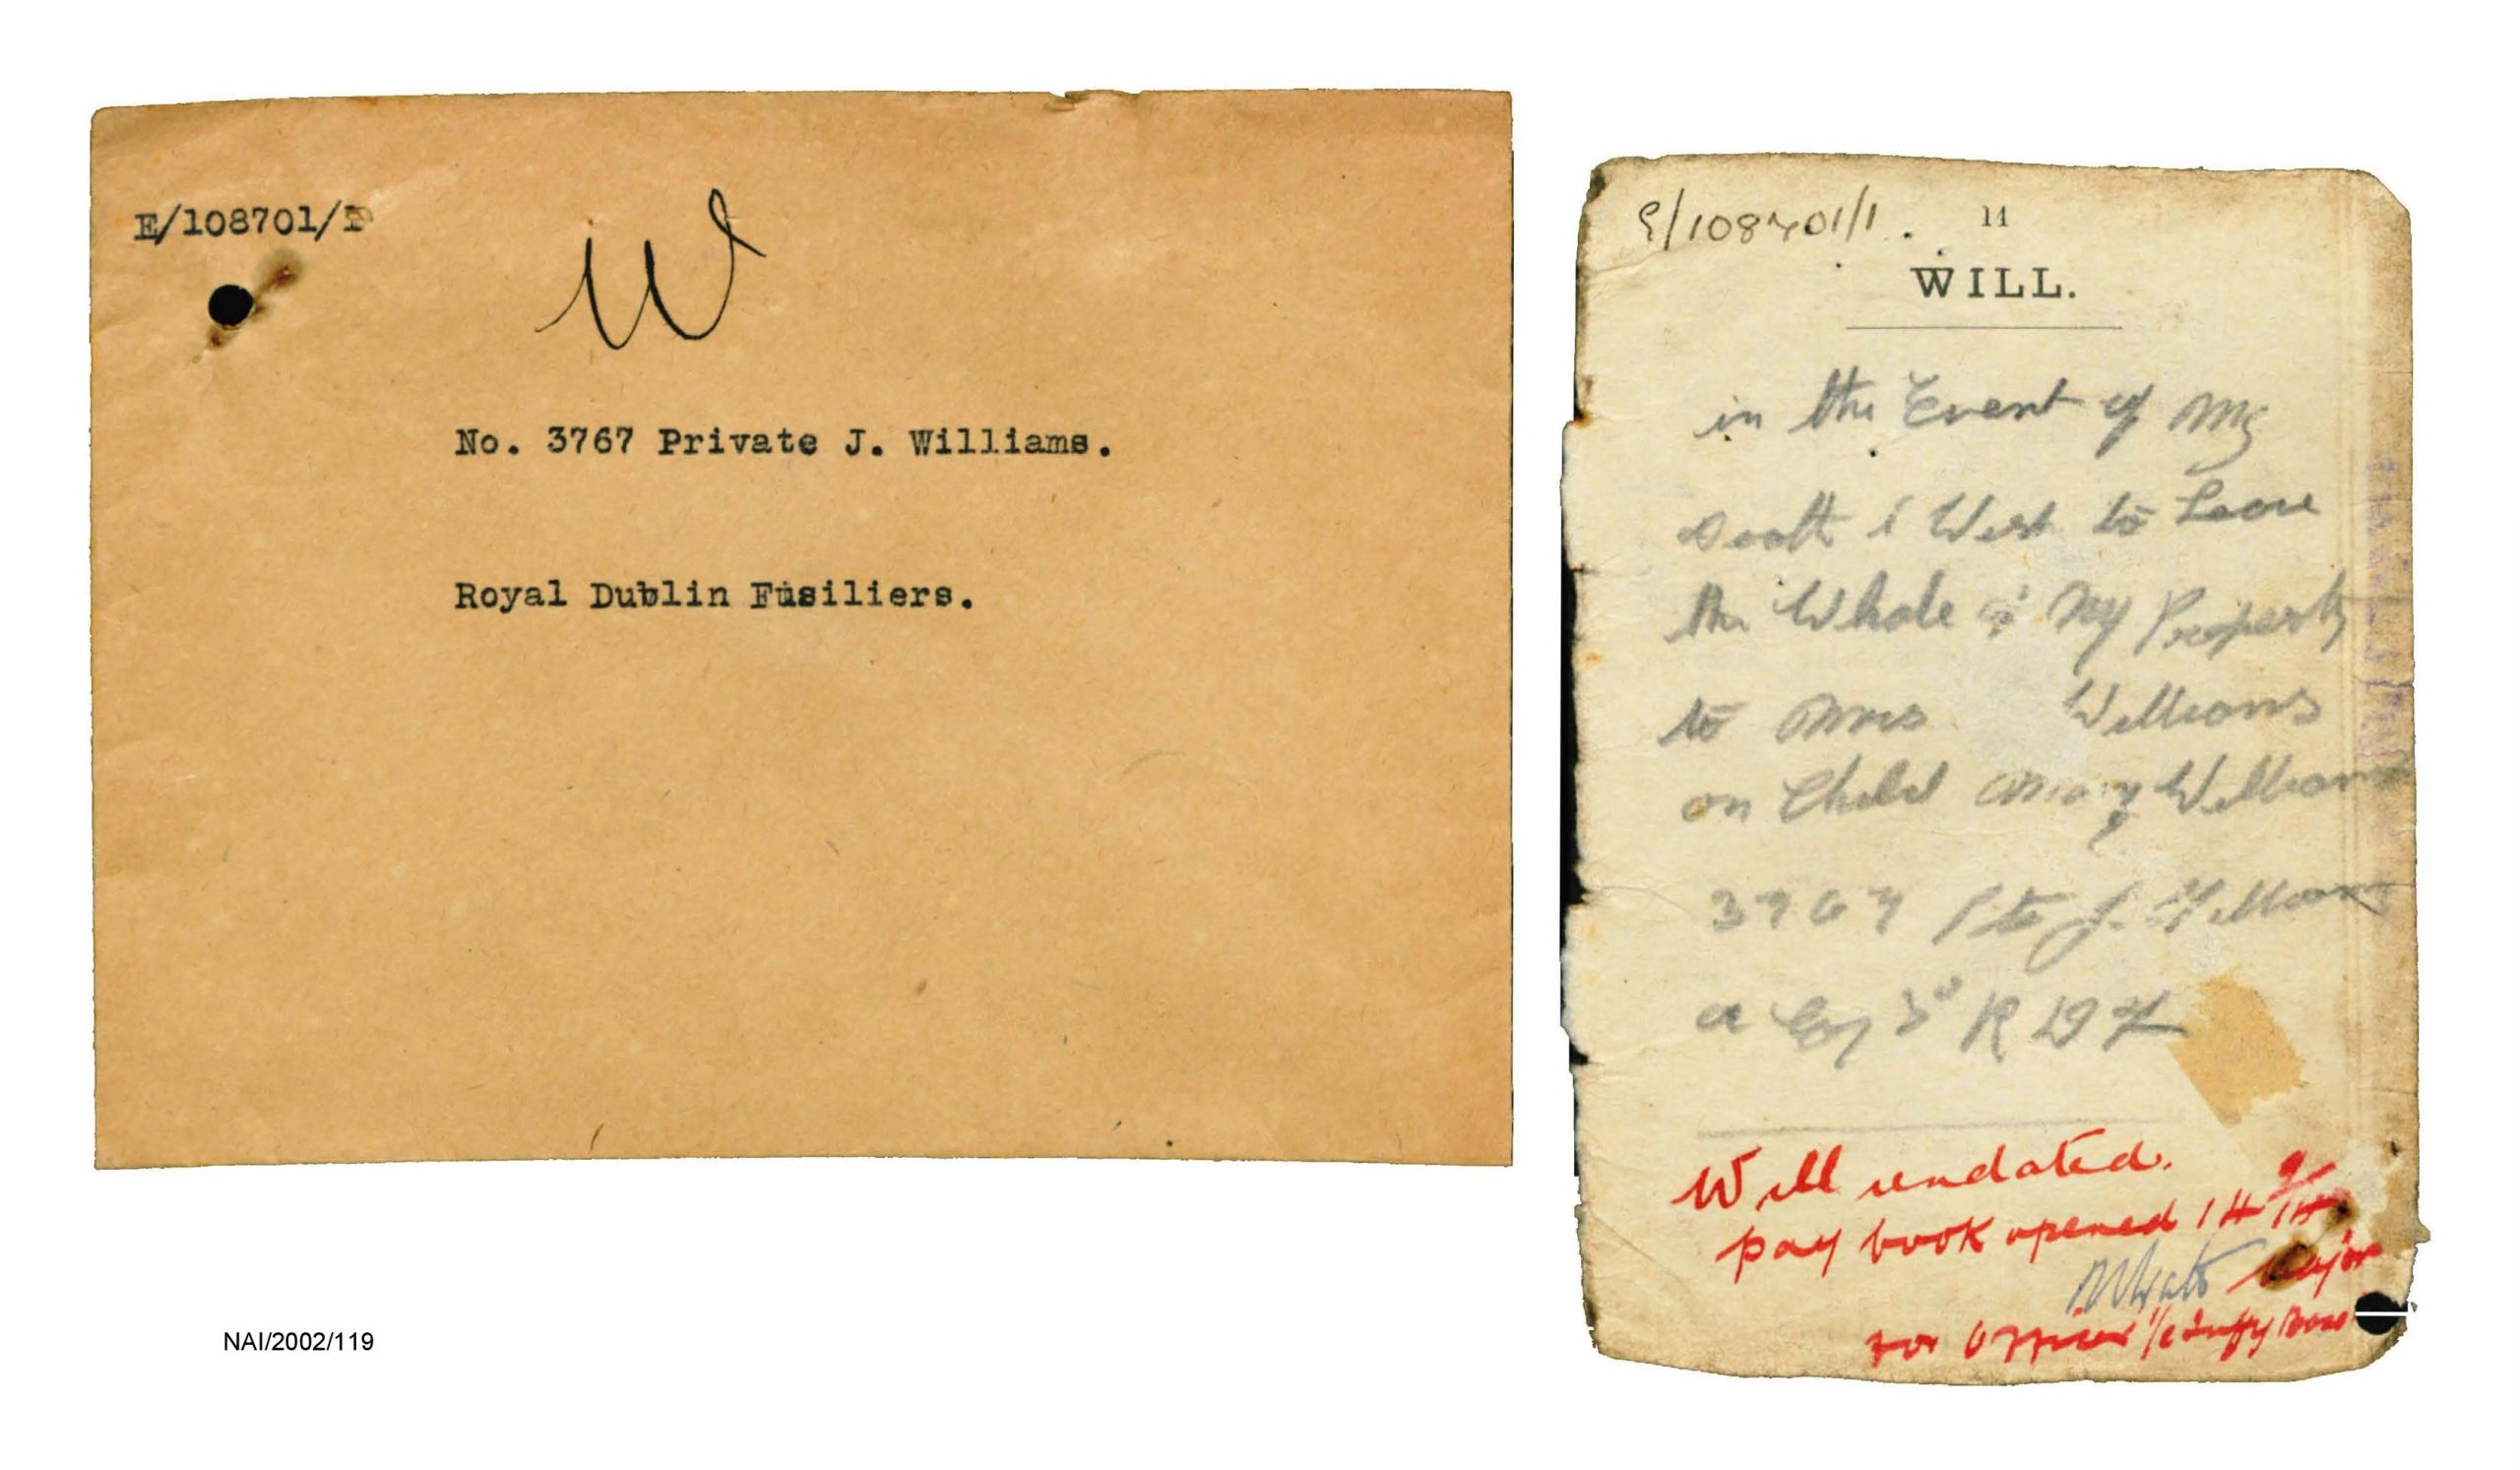 E/108701/P
W
No. 3767 Private J. Williams.
Royal Dublin Fusiliers.
NAI/2002/119
E/108701/1.
14
WILL.
in the Event of My
death i Wish to Leave
the Whole of My Property
to Mrs Williams
on Child Mary Williams
3767 Pte J. Williams
a Coy 3d R D F
Will undated.
pay book opened
Major
for Officer i/c